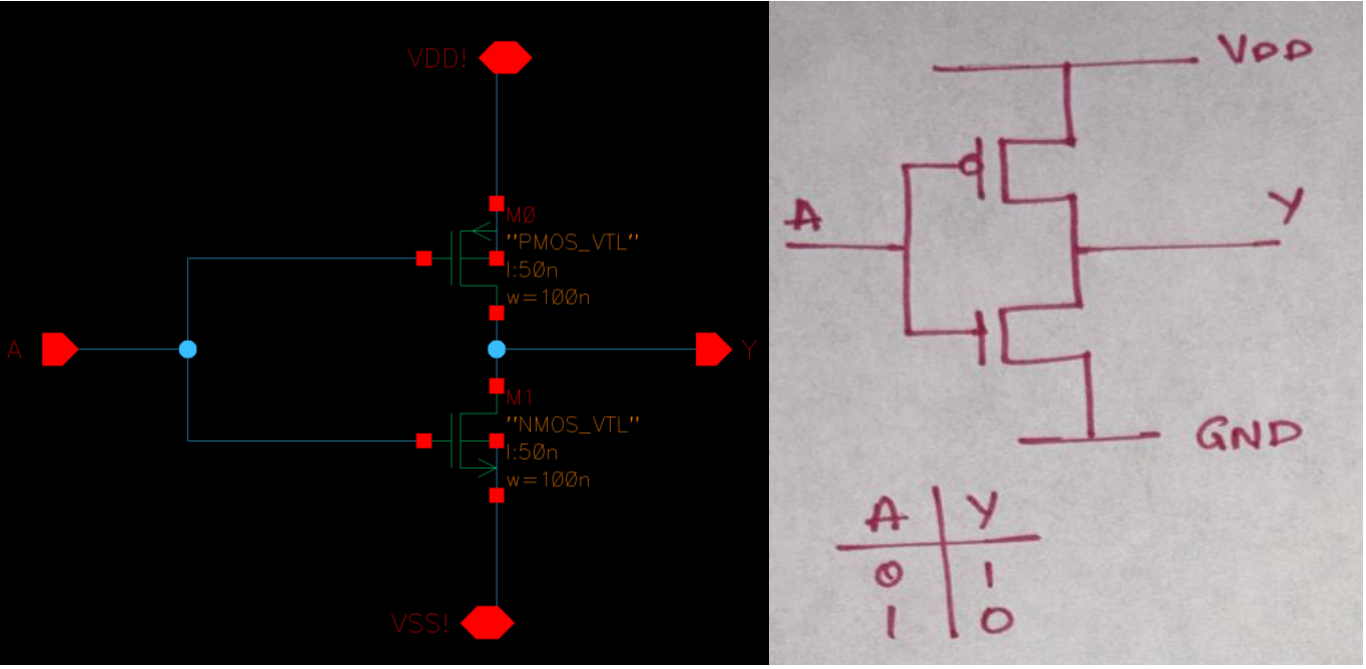 VDD!
M0
"PMOS_VTL"
l:50n
w=100n
A
Y
M1
"NMOS_VTL"
l:50n
w=100n
VSS!
VDD
A
Y
GND
A Y
0 1
1 0